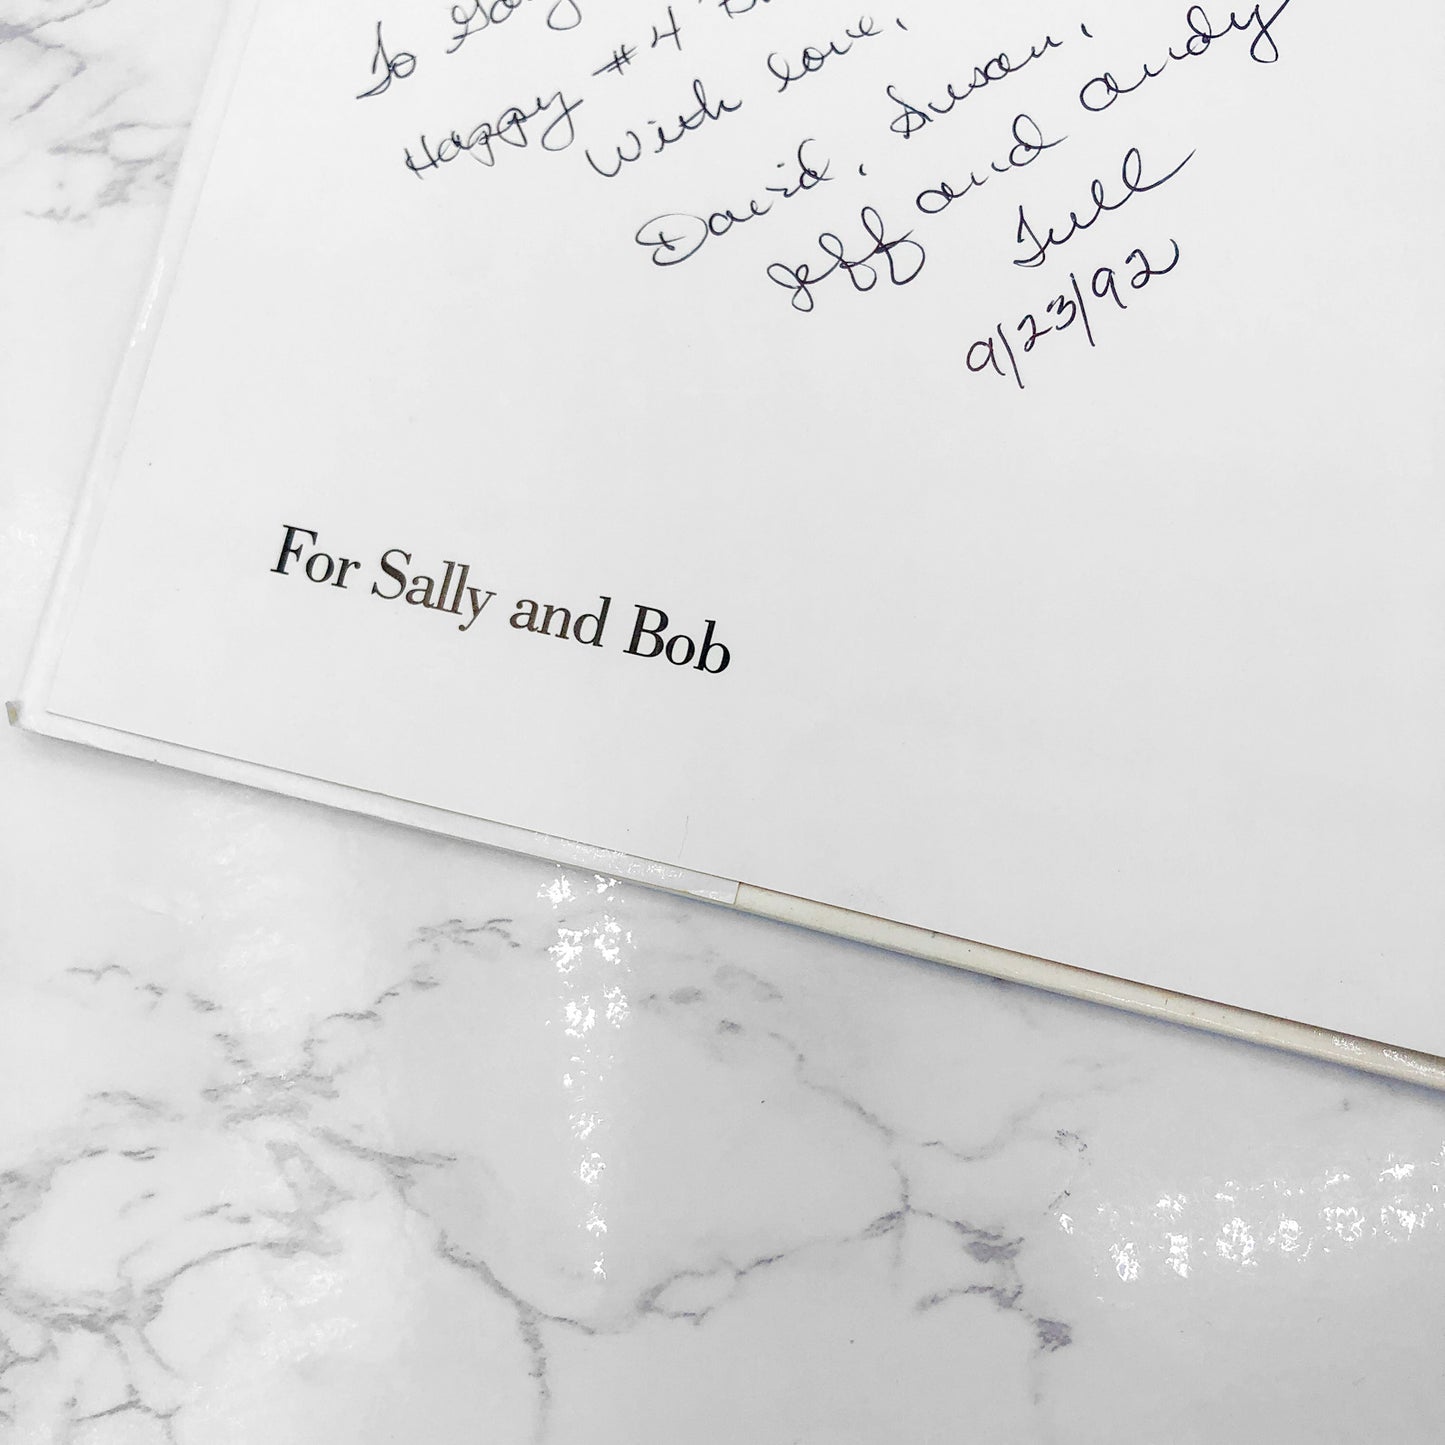 To
Happy #4
With love,
David, Susan,
Jeff and Andy
Tull
9/23/92
For Sally and Bob